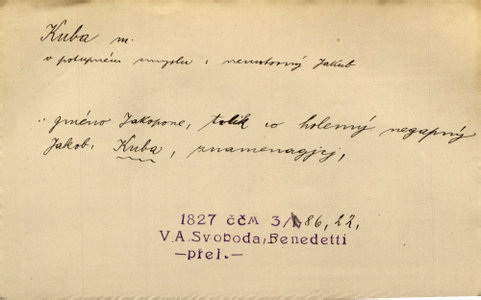 Kuba m.
v potupném smyslu: nemotorný Jakub
: gméno Jakopone, tolik co holemý negapný
Jakob, Kuba, znamenagjcj,
1827 ČČM 3/1, 86, 22,
V. A. Svoboda, Benedetti
—přel.—